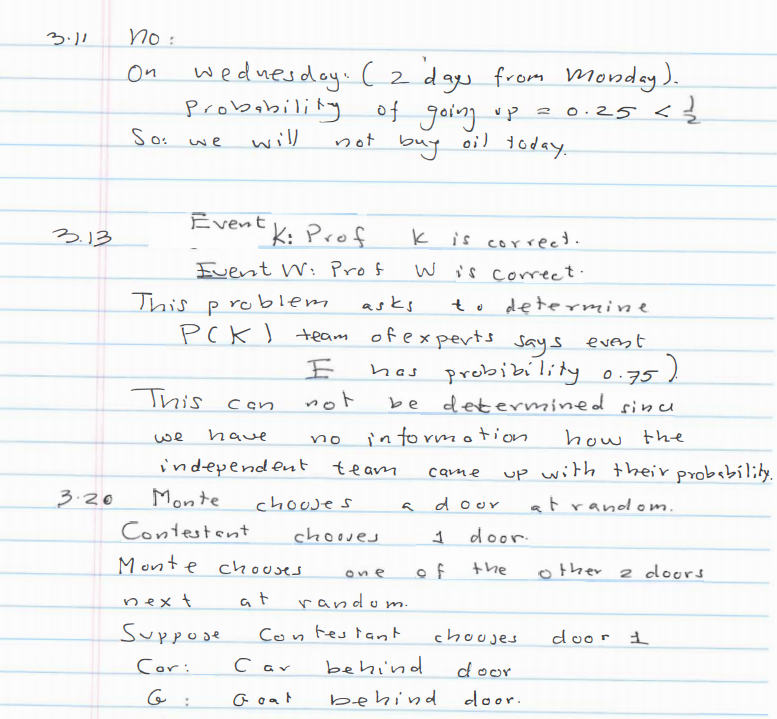 3.11 no:
On Wednesday. (2 days from Monday).
Probability of going up = 0.25 < 1/2
So: we will not buy oil today.
3.13 Event K: Prof K is correct.
Event W: Prof W is correct.
This problem asks to determine
P(K| team of experts says event
E has probibility 0.75)
This can not be determined since
we have no information how the
independent team came up with their probability.
3.20 Monte chooses a door at random.
Contestant chooses 1 door.
Monte chooses one of the other 2 doors
next at random.
Suppose Contestant chooses door 1
Car: Car behind door
G: Goat behind door.